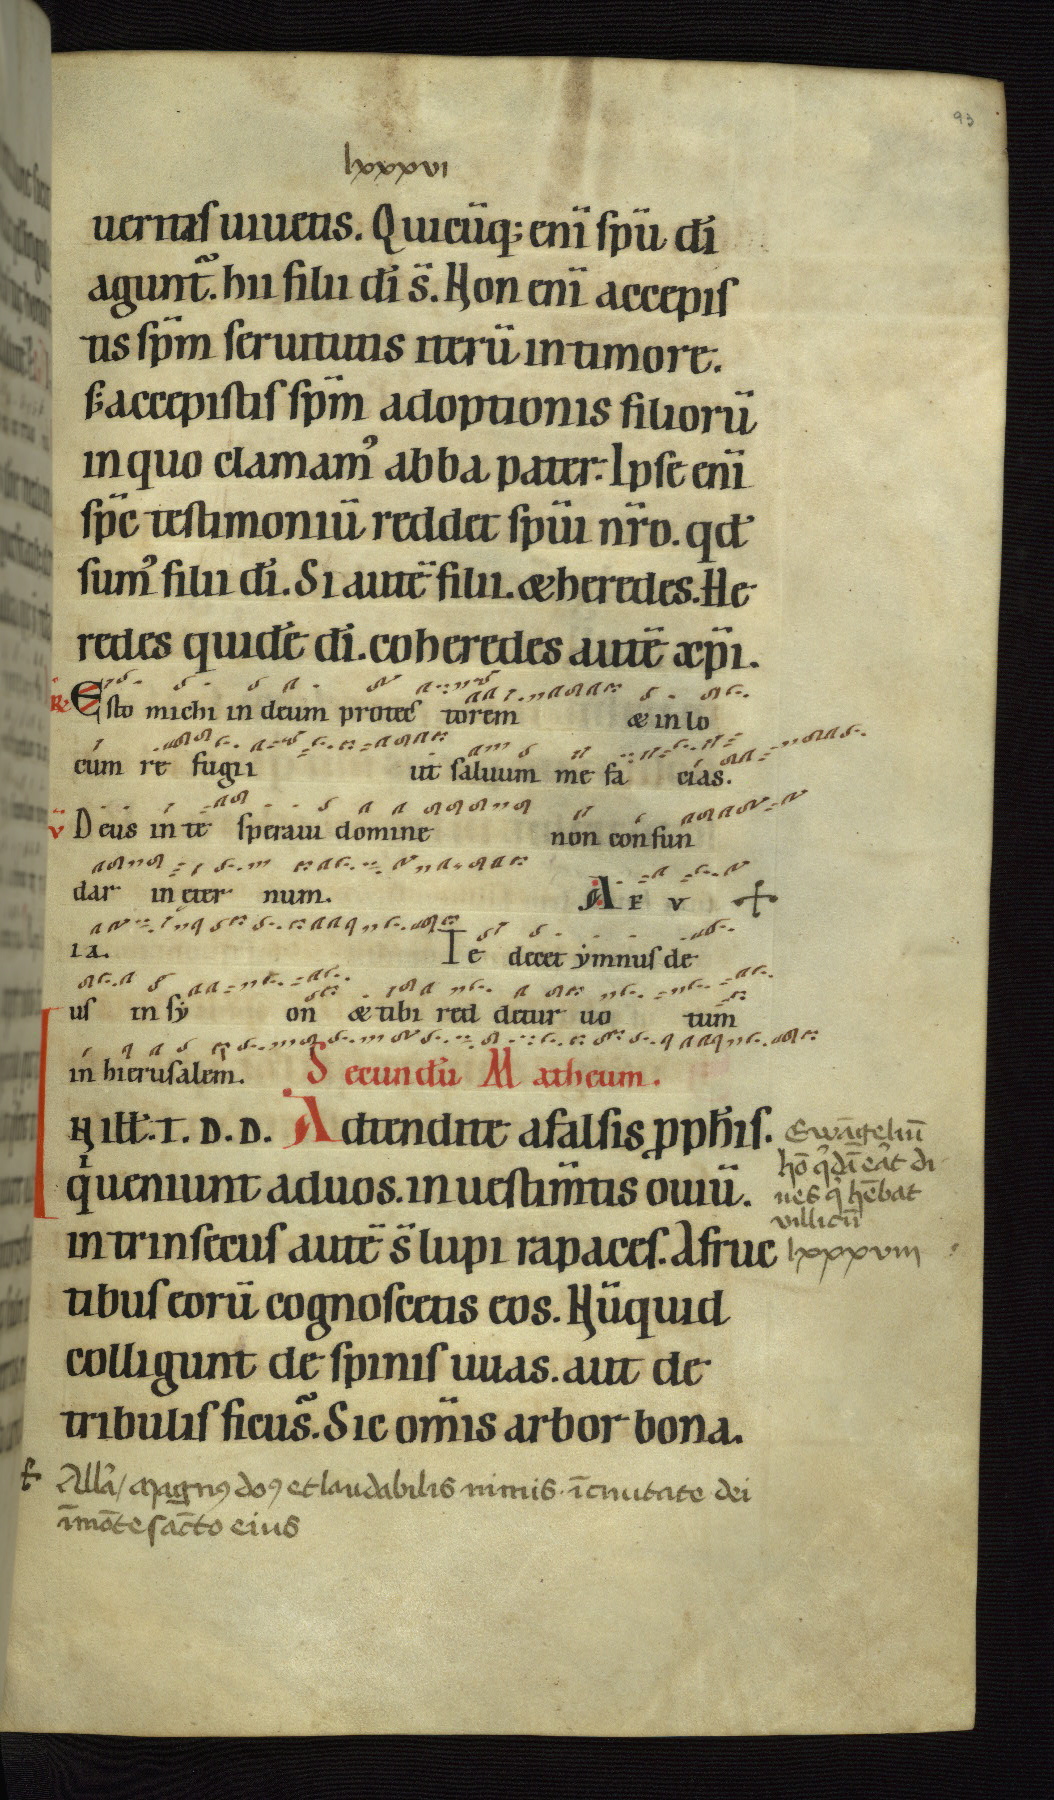 93
lxxxvi
uertitis uiuetis. Quicūq; enī spū dī
agunt̃. hii filii dī s̄. Non enī accepis
tis sp̄m seruitutis iterū in timore.
s; accepistis sp̄m adoptionis filiorū
in quo clamam᾽ abba pater. Ipse enī
sp̄c testimoniū reddet spūi nr̄o. qđ
sum᾽ filii dī. Si autē filii. & heredes. He
redes quidē dī. coheredes autē xp̄i.
R Esto michi in deum protec torem & in lo
cum re fugii ut saluum me fa cias.
V Deus in te speraui domine non confun
dar in eter num. A E V
IA. Te decet ẏmnus de
us in sẏ on & tibi red detur uo tum
in hierusalem. Secundū Matheum.
N ill̄. I. D. D. Adtendite a falsis pphīs.
qⁱ ueniunt ad uos. in uestim̄tis ouiū.
intrinsecus autē s̄ lupi rapaces. A fruc
tibus eorū cognoscetis eos. Nūquid
colligunt de spinis uuas. aut de
tribulis ficus̃. Sic om̄is arbor bona.
Ewāgeliū
hō q̄dā erāt di
ues qⁱ hēbat
villicū
lxxxviii
All᾽a / Magn᾽ do᾽ et laudabilis nimis. ī ciuitate dei
ī mōte sāc̄to eius